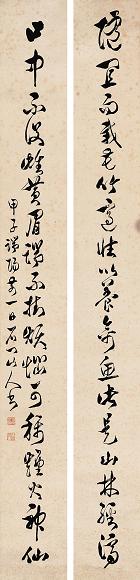 隨宜而栽花竹適性以養禽魚此是山林經濟
口中不設雌黃眉端不掛煩惱可稱煙火神仙
甲子端陽前一日 山人書